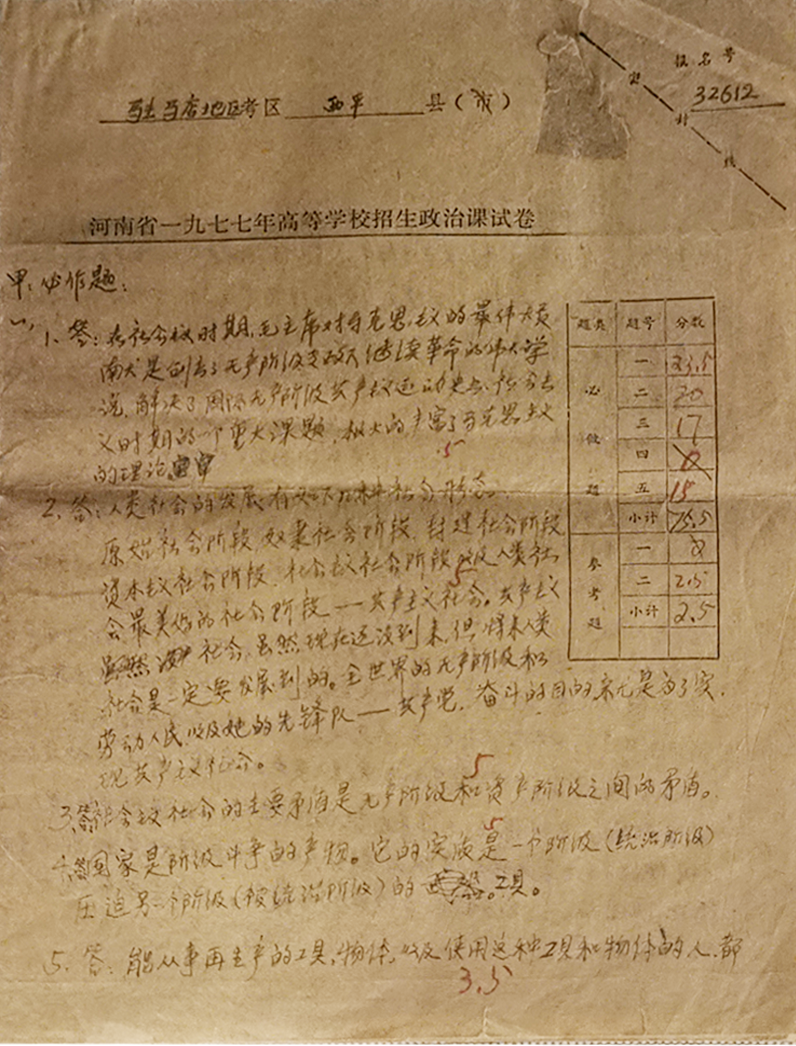 报名号
32612
密
封
线
驻马店地区考区 西平 县(市)
河南省一九七七年高等学校招生政治课试卷
甲:必作题:
一、1、答:在社会主义时期,毛主席对马克思主义的最伟大贡
献是创造了无产阶级专政下继续革命的伟大学
说,解决了国际无产阶级共产主义运动史上,社会主
义时期的一个重大课题,极大的丰富了马克思主义
的理论
5
2、答:人类社会的发展有如下几种社会形态。
原始社会阶段,奴隶社会阶段,封建社会阶段
资本主义社会阶段,社会主义社会阶段以及人类社
5
会最美好的社会阶段——共产主义社会。共产主义
社会,虽然现在还没到来,但,将来人类
社会是一定要发展到的。全世界的无产阶级和
劳动人民,以及她的先锋队——共产党,奋斗的目的
是为了实
现共产主义社会。
5
3、答:社会主义社会的主要矛盾是无产阶级和资产阶级之间的矛盾。
5
4、答:国家是阶级斗争的产物。它的实质是一个阶级(统治阶级)
压迫另一个阶级(被统治阶级)的工具。
5、答:能从事再生产的工具,物体,以及使用这种工具和物体的人,都
3.5
题类 题号 分数
必做题 一 23.5
二 20
三 17
四
五 15
小计
参考题 一 0
二 2.5
小计 2.5